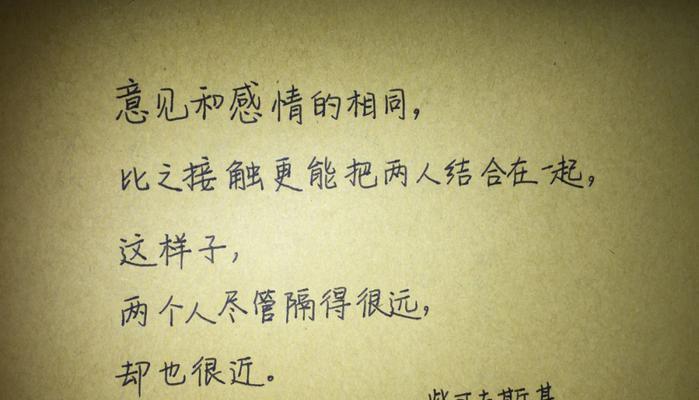 意见和感情的相同，
比之接触更能把两人结合在一起，
这样子，
两个人尽管隔得很远，
却也很近。